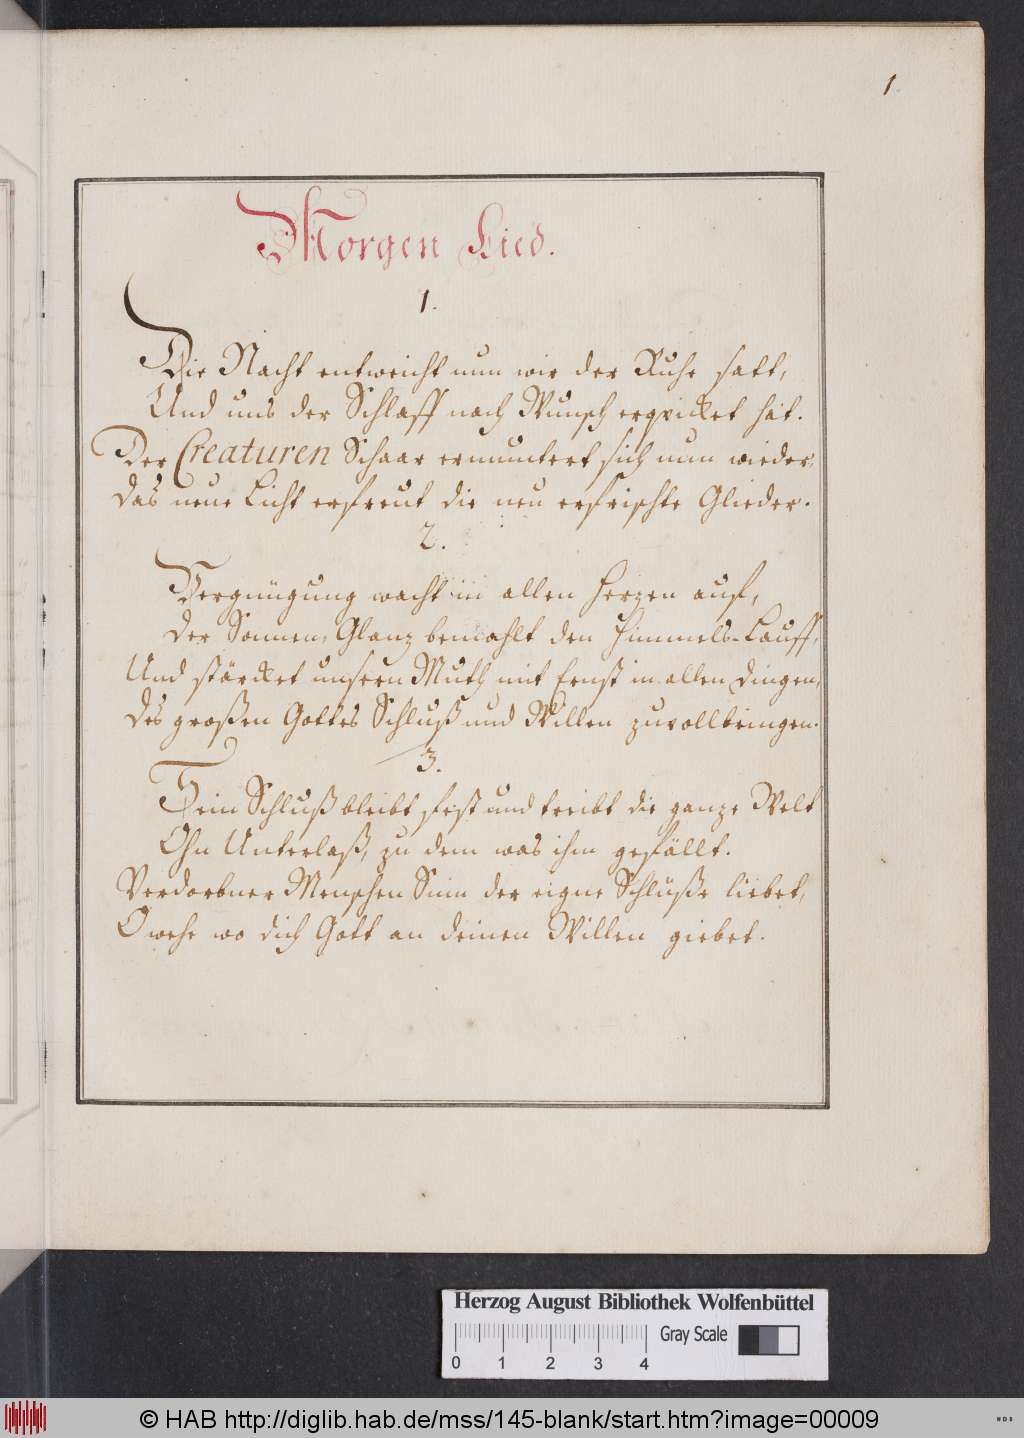 1.
Morgen Lied.
1.
Die Nacht entweicht nun wir der Ruhe satt,
Und uns der Schlaff nach Wunsch erqvicket hat.
Der Creaturen Schaar ermuntert sich nun wieder,
das neue Licht erfreut die neu erfrischte Glieder.
2.
Vergnügung wacht in allen Herzen auf,
der Sonnen-Glanz bemahlt den Himmels-Lauff,
Und stärcket unsern Muth mit Ernst in allen dingen,
des großen Gottes Schluß und Willen zuvollbringen.
3.
Sein Schluß bleibt fest und treibt die ganze Welt
Ohn Unterlaß, zu dem was ihm gefällt.
Verdorbner Menschen Sinn der eigne Schlüße liebet,
O wehe wo dich Gott an deinen Willen giebet.
Herzog August Bibliothek Wolfenbüttel
Gray Scale
0 1 2 3 4
© HAB http://diglib.hab.de/mss/145-blank/start.htm?image=00009